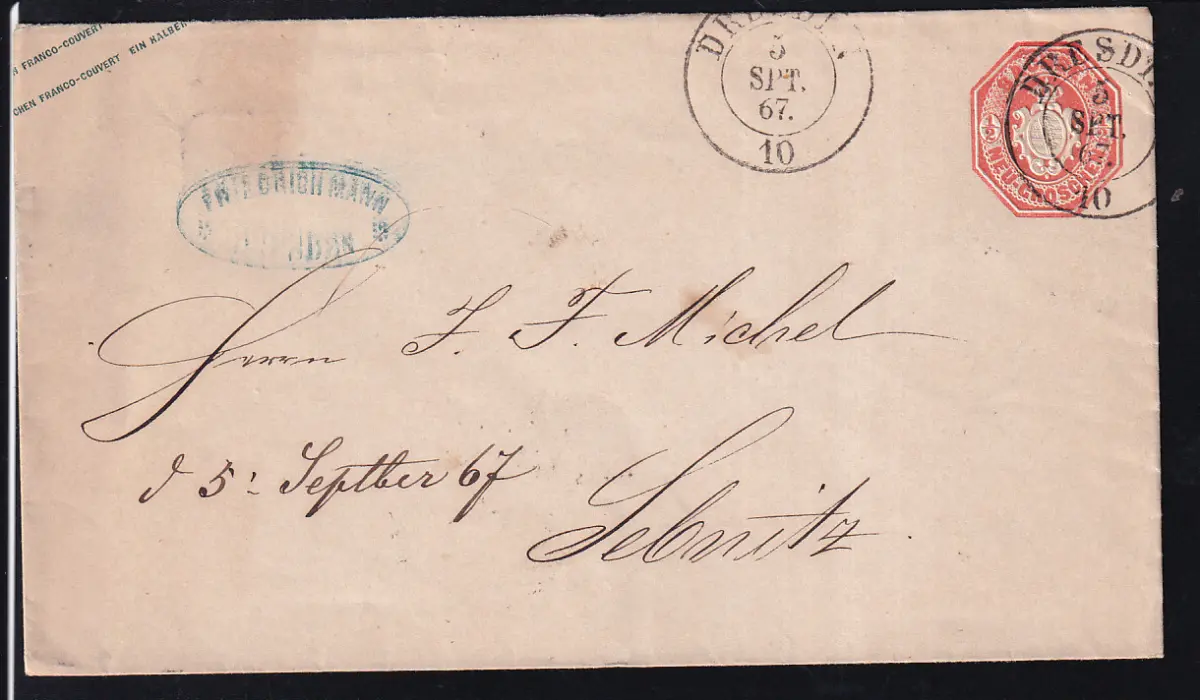 FRANCO-COUVERT
CHEN FRANCO-COUVERT EIN HALBER
DRESDEN
5
SPT.
67.
10
DRESD
5
SPT.
67.
10
½ NEUGROSCHEN
FRIEDRICH MANN
DRESDEN
Herrn J. F. Michel
d 5: Septber 67
Sebnitz